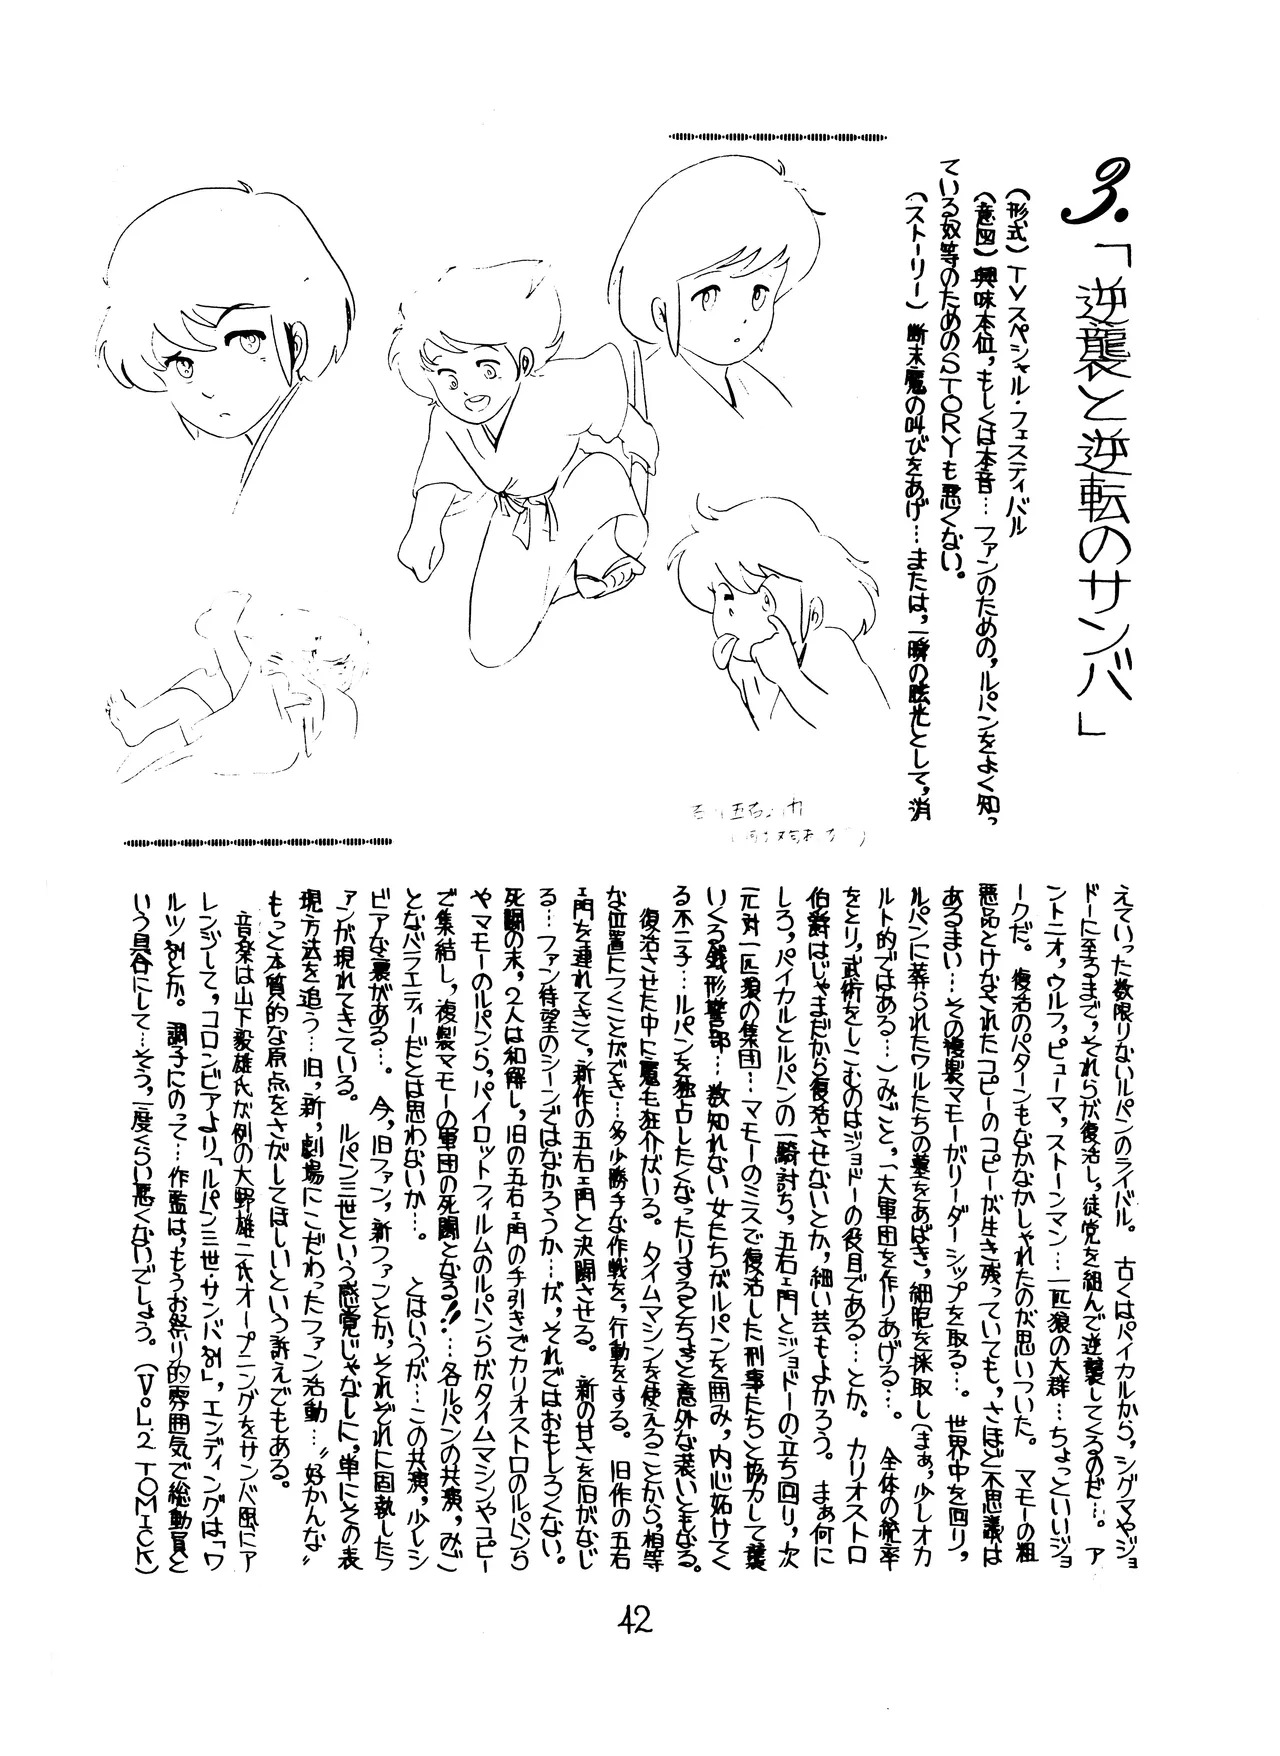 3.「逆襲と逆転のサンバ」
(形式)TVスペシャル・フェスティバル
(意図)興味本位,もしくは本音…ファンのための,ルパンをよく知っ
ている奴等のためのSTORYも悪くない。
(ストーリー)断末魔の叫びをあげ…または,一瞬の眩光として,消
えていった数限りないルパンのライバル。古くはパイカルから,シグマやジョ
ドーに至るまで,それらが復活し,徒党を組んで逆襲してくるのだ…。ア
ントニオ,ウルフ,ピューマ,ストーンマン…一匹狼の大群…ちょっといいジョ
ークだ。復活のパターンもなかなかしゃれたのが思いついた。マモーの粗
悪品とけなされたコピーのコピーが生き残っていても,さほど不思議は
あるまい…その複製マモーがリーダーシップを取る…。世界中を回り,
ルパンに葬られたワルたちの墓をあばき,細胞を採取し(まぁ,少しオカ
ルト的ではある…)みごと,一大軍団を作りあげる…。全体の統率
をとり,武術をしこむのはジョドーの役目である…とか。カリオストロ
伯爵はじゃまだから復活させないとか,細い芸もよかろう。まぁ何に
しろ,パイカルとルパンの一騎討ち,五右ェ門とジョドーの立ち回り,次
元対一匹狼の集団…マモーのミスで復活した刑事たちと協力して襲
いくる銭形警部…数知れない女たちがルパンを囲み,内心妬けてく
る不二子…ルパンを独占したくなったりするとちょっと意外な装いともなる。
復活させた中に魔毛狂介がいる。タイムマシンを使えることから,相等
な位置につくことができ…多少勝手な作戦を,行動をする。旧作の五右
ェ門を連れてきて,新作の五右ェ門と決闘させる。新の甘さを旧がなじ
る…ファン待望のシーンではなかろうか…が,それではおもしろくない。
死闘の末,2人は和解し,旧の五右ェ門の手引きでカリオストロのルパンら
やマモーのルパンら,パイロットフィルムのルパンらがタイムマシンやコピー
で集結し,複製マモーの軍団の死闘となる!!…各ルパンの共演,みご
となバラエティーだとは思わないか…。とはいうが…この共演,少しシ
ビアな裏がある…。今,旧ファン,新ファンとか,それぞれに固執したフ
ァンが現れてきている。ルパン三世という感覚じゃなしに,単にその表
現方法を追う…旧,新,劇場にこだわったファン活動…"好かんな"
もっと本質的な原点をさがしてほしいという訴えでもある。
音楽は山下毅雄氏が例の大野雄二氏オープニングをサンバ風にア
レンジして,コロンビアより「ルパン三世・サンバ'81」,エンディングは「ワ
ルツ'81」とか。調子にのって…作監は,もうお祭り的雰囲気で総動員と
いう具合にして…そう,一度くらい悪くないでしょう。(VOL2 TOMICK)
42